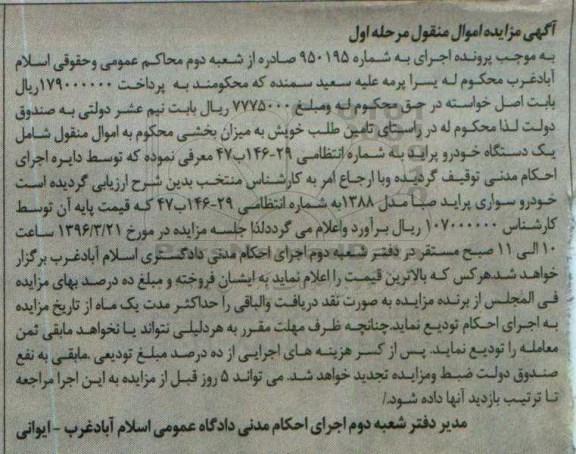 آگهی مزایده اموال منقول مرحله اول
به موجب پرونده اجرای به شماره ۹۵۰۱۹۵ صادره از شعبه دوم محاکم عمومی وحقوقی اسلام
آبادغرب محکوم له یسرا پرمه علیه سعید سمنده که محکومند به پرداخت ۱۷۹۰۰۰۰۰۰ریال
بابت اصل خواسته در حق محکوم له ومبلغ ۷۷۷۵۰۰۰ ریال بابت نیم عشر دولتی به صندوق
دولت لذا محکوم له در راستای تامین طلب خویش به میزان بخشی محکوم به اموال منقول شامل
یک دستگاه خودرو پراید به شماره انتظامی ۲۹-۱۴۶ب۴۷ معرفی نموده که توسط دایره اجرای
احکام مدنی توقیف گردیده وبا ارجاع امر به کارشناس منتخب بدین شرح ارزیابی گردیده است
خودرو سواری پراید صبا مدل ۱۳۸۸به شماره انتظامی ۲۹-۱۴۶ب۴۷ که قیمت پایه آن توسط
کارشناس ۱۰۷۰۰۰۰۰۰ ریال برآورد واعلام می گرددلذا جلسه مزایده در مورخ ۱۳۹۶/۳/۲۱ ساعت
۱۰ الی ۱۱ صبح مستقر در دفتر شعبه دوم اجرای احکام مدنی دادگستری اسلام آبادغرب برگزار
خواهد شد هرکس که بالاترین قیمت را اعلام نماید به ایشان فروخته و مبلغ ده درصد بهای مزایده
فی المجلس از برنده مزایده به صورت نقد دریافت والباقی را حداکثر مدت یک ماه از تاریخ مزایده
به اجرای احکام تودیع نماید.چنانچه ظرف مهلت مقرر به هردلیلی نتواند یا نخواهد مابقی ثمن
معامله را تودیع نماید. پس از کسر هزینه های اجرایی از ده درصد مبلغ تودیعی .مابقی به نفع
صندوق دولت ضبط ومزایده تجدید خواهد شد. می تواند ۵ روز قبل از مزایده به این اجرا مراجعه
تا ترتیب بازدید آنها داده شود./
مدیر دفتر شعبه دوم اجرای احکام مدنی دادگاه عمومی اسلام آبادغرب - ایوانی